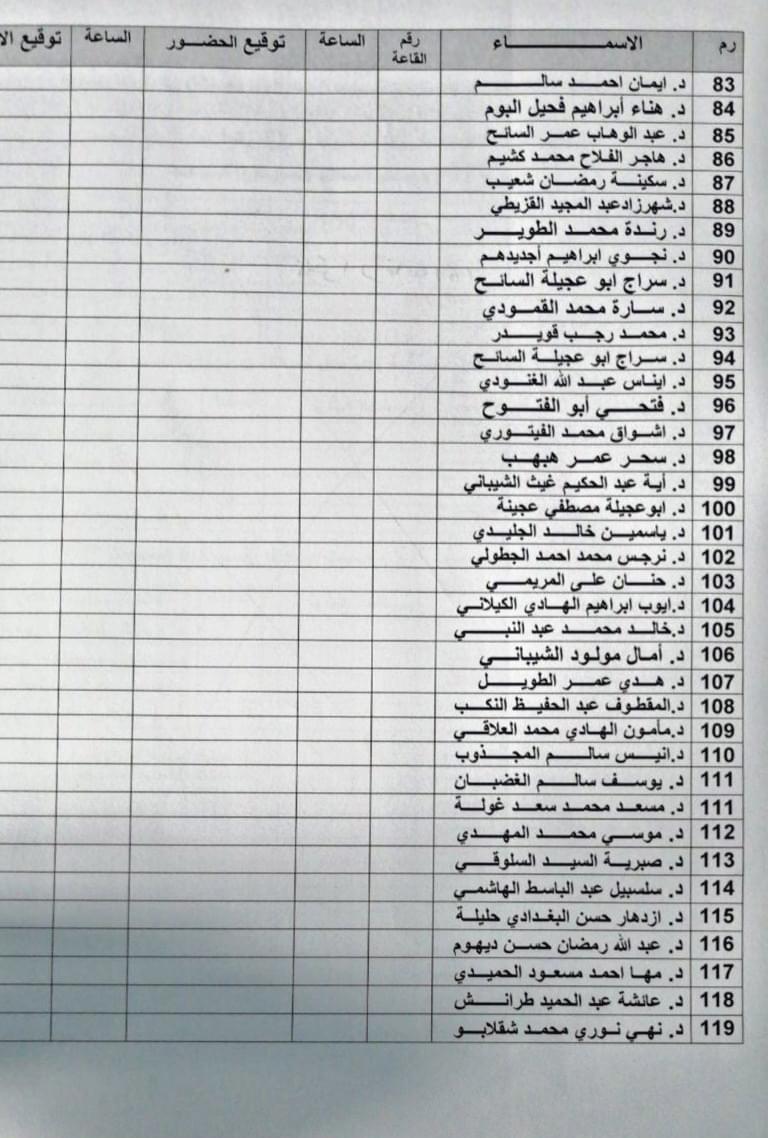 رم الاسمــــاء رقم القاعة الساعة توقيع الحضــور الساعة توقيع
83 د. ايمـان احمــد سالــــم
84 د. هناء أبراهيم فحيل البوم
85 د. عبد الوهاب عمـر السائح
86 د. هاجر الفلاح محمـد كشيم
87 د. سكينــة رمضــان شعيب
88 د.شهرزادعبد المجيد القزيطي
89 د. رنـدة محمــد الطويـــر
90 د. نجــوي ابراهيـم أجديدهم
91 د. سراج ابو عجيلة السائــح
92 د. ســارة محمد القمــودي
93 د. محمـد رجــب قويــــدر
94 د. ســراج ابو عجيلــة السائح
95 د. ايناس عبــد الله الغنــودي
96 د. فتحـــي أبو الفتـــوح
97 د. اشــواق محمـد الفيتــوري
98 د. سحـر عمــر هبهــب
99 د. أيـة عبد الحكيم غيث الشيباني
100 د. ابوعجيلة مصطفي عجينة
101 د. ياسميــن خالــد الجليـدي
102 د. نرجس محمد احمد الجطولي
103 د. حنــــان على المريمــي
104 د.ايوب ابراهيم الهـادي الكيلاني
105 د.خالــد محمــد عبد النبــــي
106 د. أمـال مولـود الشيبانــي
107 د. هــدي عمــر الطويـــل
108 د.المقطوف عبد الحفيـظ النكـب
109 د.مأمون الهادي محمد العلاقـي
110 د.انيــس سالــــم المجــذوب
111 د. يوســف سالــم الغضبــان
111 د. مسعـد محمـد سعــد غولــة
112 د. موسـي محمــد المهــدي
113 د. صبريــة السيـد السلوقــي
114 د. سلسبيل عبد الباسط الهاشمـي
115 د. ازدهار حسن البغـدادي حليلـة
116 د. عبد الله رمضان حسـن ديهوم
117 د. مهـا احمد مسعـود الحميـدي
118 د. عائشة عبد الحميد طرانــش
119 د. نهـي نـوري محمـد شقلابـو